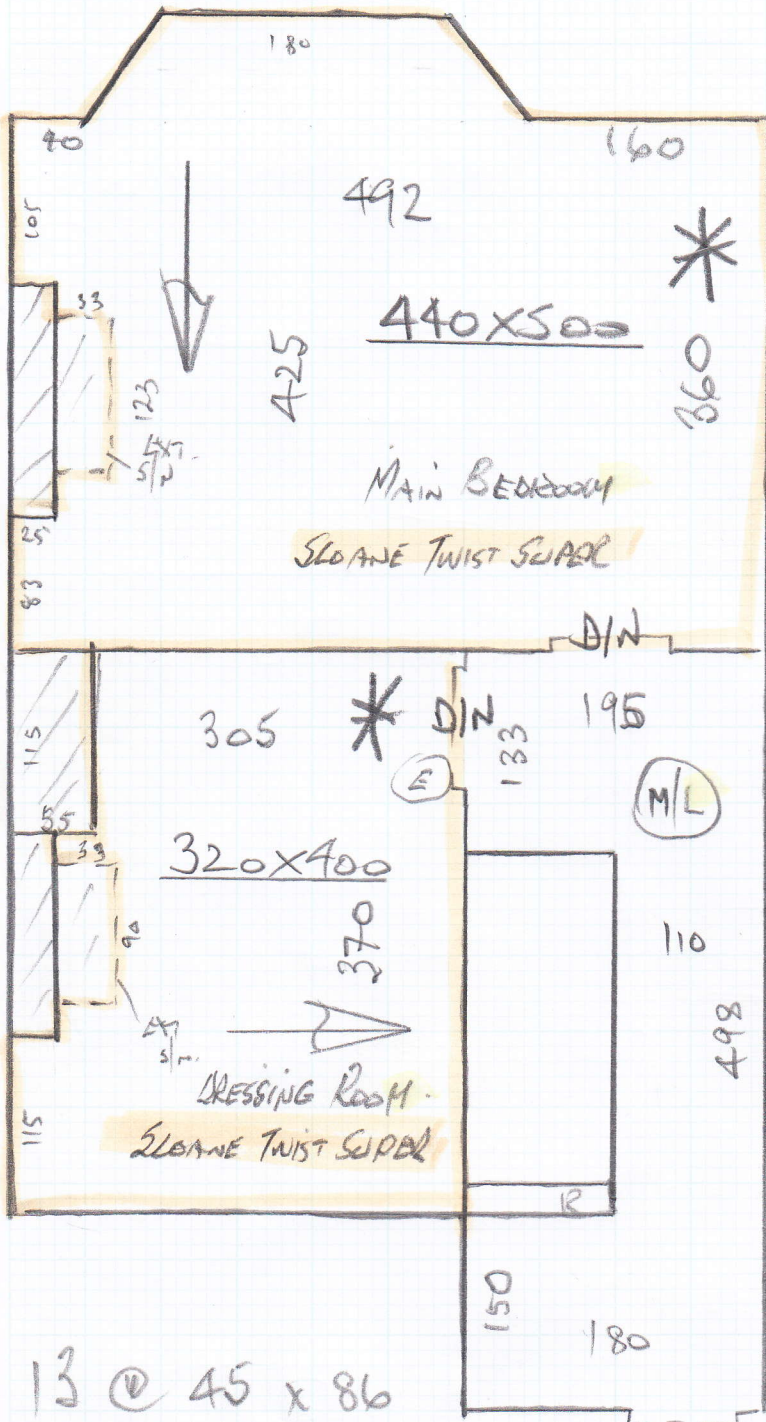 180
40
160
105
492
33
440x500
425
123
360
EXT.
S/N
MAIN BEDROOM
25
SLOANE TWIST SUPER
83
D/N
305
D/N
195
133
115
E
M/L
55
33
320x400
90
370
110
498
EXT
S/N.
DRESSING ROOM.
115
SLOANE TWIST SUPER
R
150
180
13 @ 45 x 86